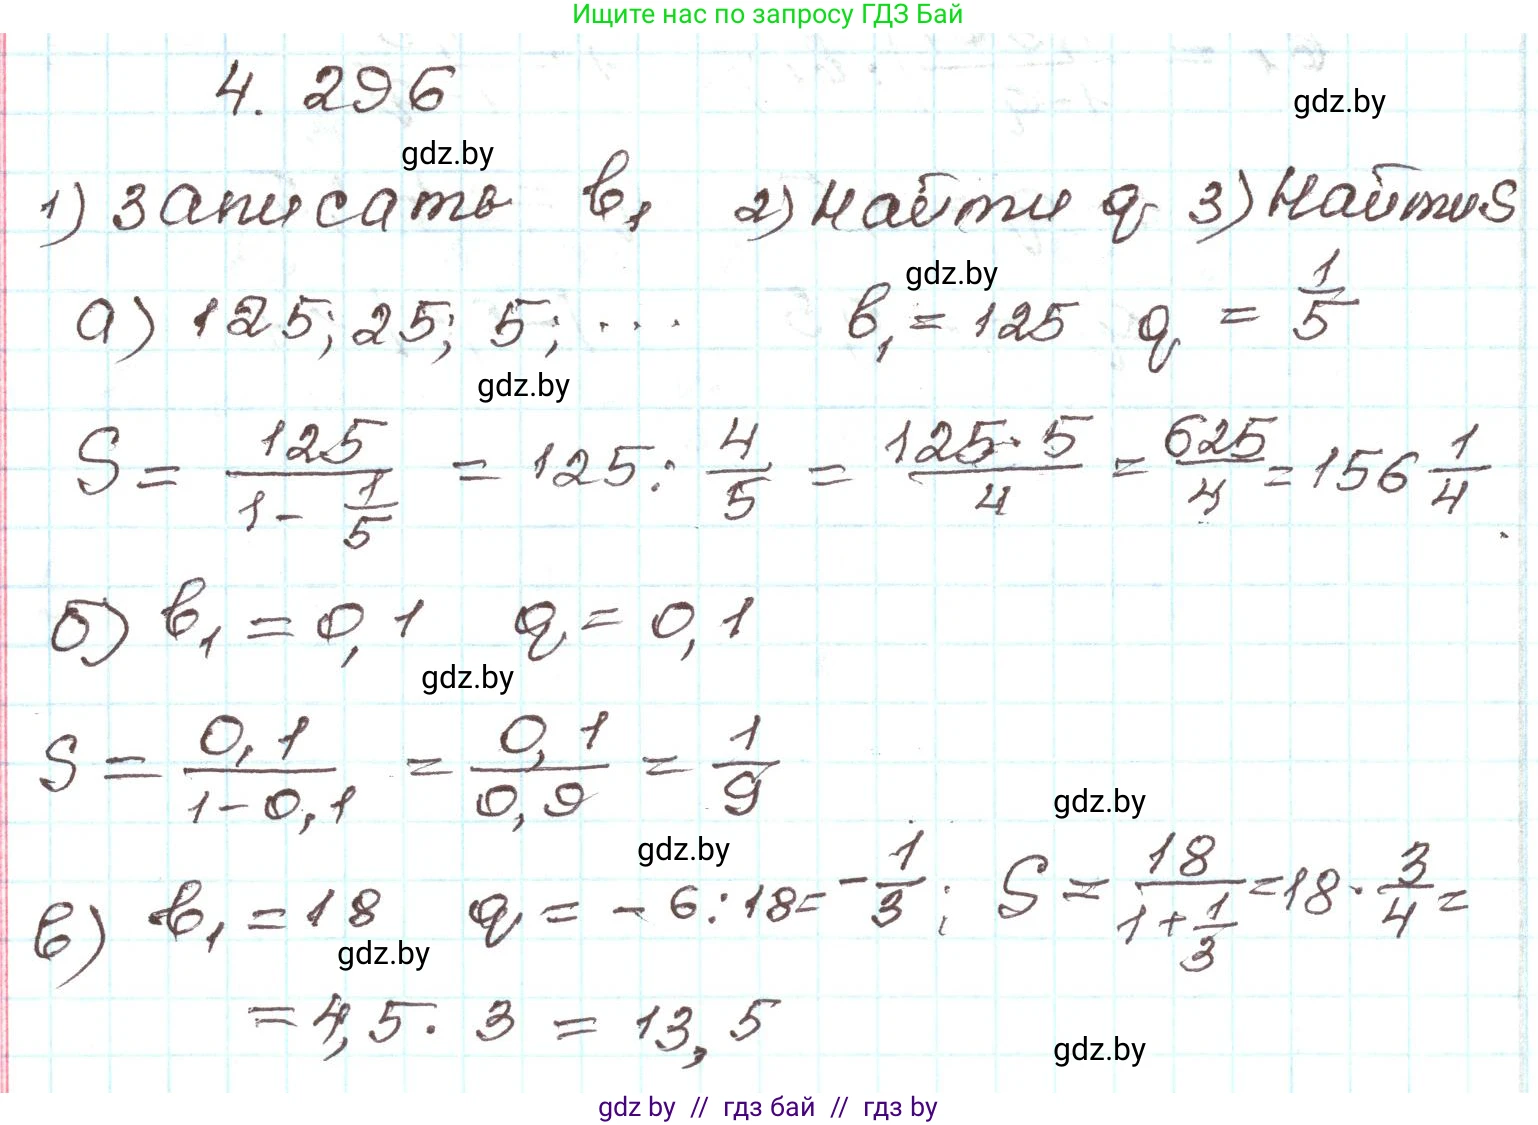 Ищите нас по запросу ГДЗ Бай
4. 296
gdz.by
gdz.by
1) Записать b₁ 2) Найти q 3) Найти S
gdz.by
а) 125; 25; 5; ... b₁ = 125 q = 1/5
gdz.by
S = 125/(1 - 1/5) = 125 : 4/5 = 125 · 5/4 = 625/4 = 156 1/4
б) b₁ = 0,1 q = 0,1
gdz.by
S = 0,1/(1-0,1) = 0,1/0,9 = 1/9
gdz.by
gdz.by
в) b₁ = 18 q = - 6 : 18 = - 1/3; S = 18/(1 + 1/3) = 18 · 3/4 =
gdz.by
= 4,5 · 3 = 13,5
gdz.by
gdz by // гдз бай // гдз by